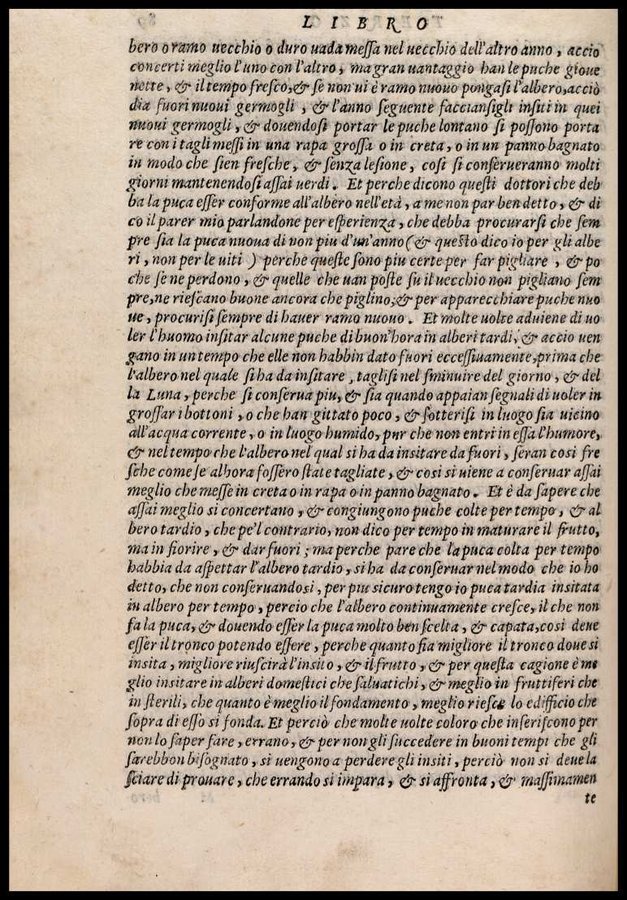 LIBRO
bero o ramo uecchio o duro uada messa nel uecchio dell'altro anno, accio
concerti meglio l'uno con l'altro, ma gran uantaggio han le puche gioue
nette, & il tempo fresco, & se non ui è ramo nuouo pongasi l'albero, acciò
dia fuori nuoui germogli, & l'anno seguente faccianſigli inſiti in quei
nuoui germogli, & douendosi portar le puche lontano si poſſono porta
re con i tagli meſſi in una rapa groſſa o in creta, o in un panno bagnato
in modo che sien freſche, & ſenza leſione, coſi ſi conſerueranno molti
giorni mantenendosi aſſai uerdi. Et perche dicono queſti dottori che deb
ba la puca eſſer conforme all'albero nell'età, a me non par ben detto, & di
co il parer mio parlandone per eſperienza, che debba procurarſi che ſem
pre ſia la puca nuoua di non piu d'un'anno (& queſto dico io per gli albe
ri, non per le uiti) perche queſte ſono piu certe per far pigliare, & po
che ſe ne perdono, & quelle che uan poſte ſu il uecchio non pigliano ſem
pre, ne rieſcano buone ancora che piglino, & per apparecchiare puche nuo
ue, procuriſi ſempre di hauer ramo nuouo. Et molte uolte aduiene di uo
ler l'huomo inſitar alcune puche di buon'hora in alberi tardi, & accio uen
gano in un tempo che elle non habbin dato fuori ecceſſiuamente, prima che
l'albero nel quale ſi ha da inſitare, tagliſi nel ſminuire del giorno, & del
la Luna, perche ſi conſerua piu, & ſia quando appaian ſegnali di uoler in
groſſar i bottoni, o che han gittato poco, & ſotteriſi in luogo ſia uicino
all'acqua corrente, o in luogo humido, pur che non entri in eſſa l'humore,
& nel tempo che l'albero nel qual ſi ha da inſitare da fuori, ſeran coſi fre
ſche come ſe alhora foſſero ſtate tagliate, & coſi ſi uiene a conſeruar aſſai
meglio che meſſe in creta o in rapa o in panno bagnato. Et è da ſapere che
aſſai meglio ſi concertano, & congiungono puche colte per tempo, & al
bero tardio, che pe'l contrario, non dico per tempo in maturare il frutto,
ma in fiorire, & dar fuori; ma perche pare che la puca colta per tempo
habbia da aſpettar l'albero tardio, ſi ha da conſeruar nel modo che io ho
detto, che non conſeruandoſi, per piu ſicuro tengo io puca tardia inſitata
in albero per tempo, percio che l'albero continuamente creſce, il che non
fa la puca, & douendo eſſer la puca molto ben ſcelta, & capata, coſi deue
eſſer il tronco potendo eſſere, perche quanto ſia migliore il tronco doue ſi
inſita, migliore riuſcirà l'inſito, & il frutto, & per queſta cagione è me
glio inſitare in alberi domeſtici che ſaluatichi, & meglio in fruttiferi che
in ſterili, che quanto è meglio il fondamento, meglio rieſce lo edifficio che
ſopra di eſſo ſi fonda. Et perciò che molte uolte coloro che inſeriſcono per
non lo ſaper fare, errano, & per non gli ſuccedere in buoni tempi che gli
ſarebbon biſognato, ſi uengono a perdere gli inſiti, perciò non ſi deue la
ſciare di prouare, che errando ſi impara, & ſi affronta, & maſſimamen
te